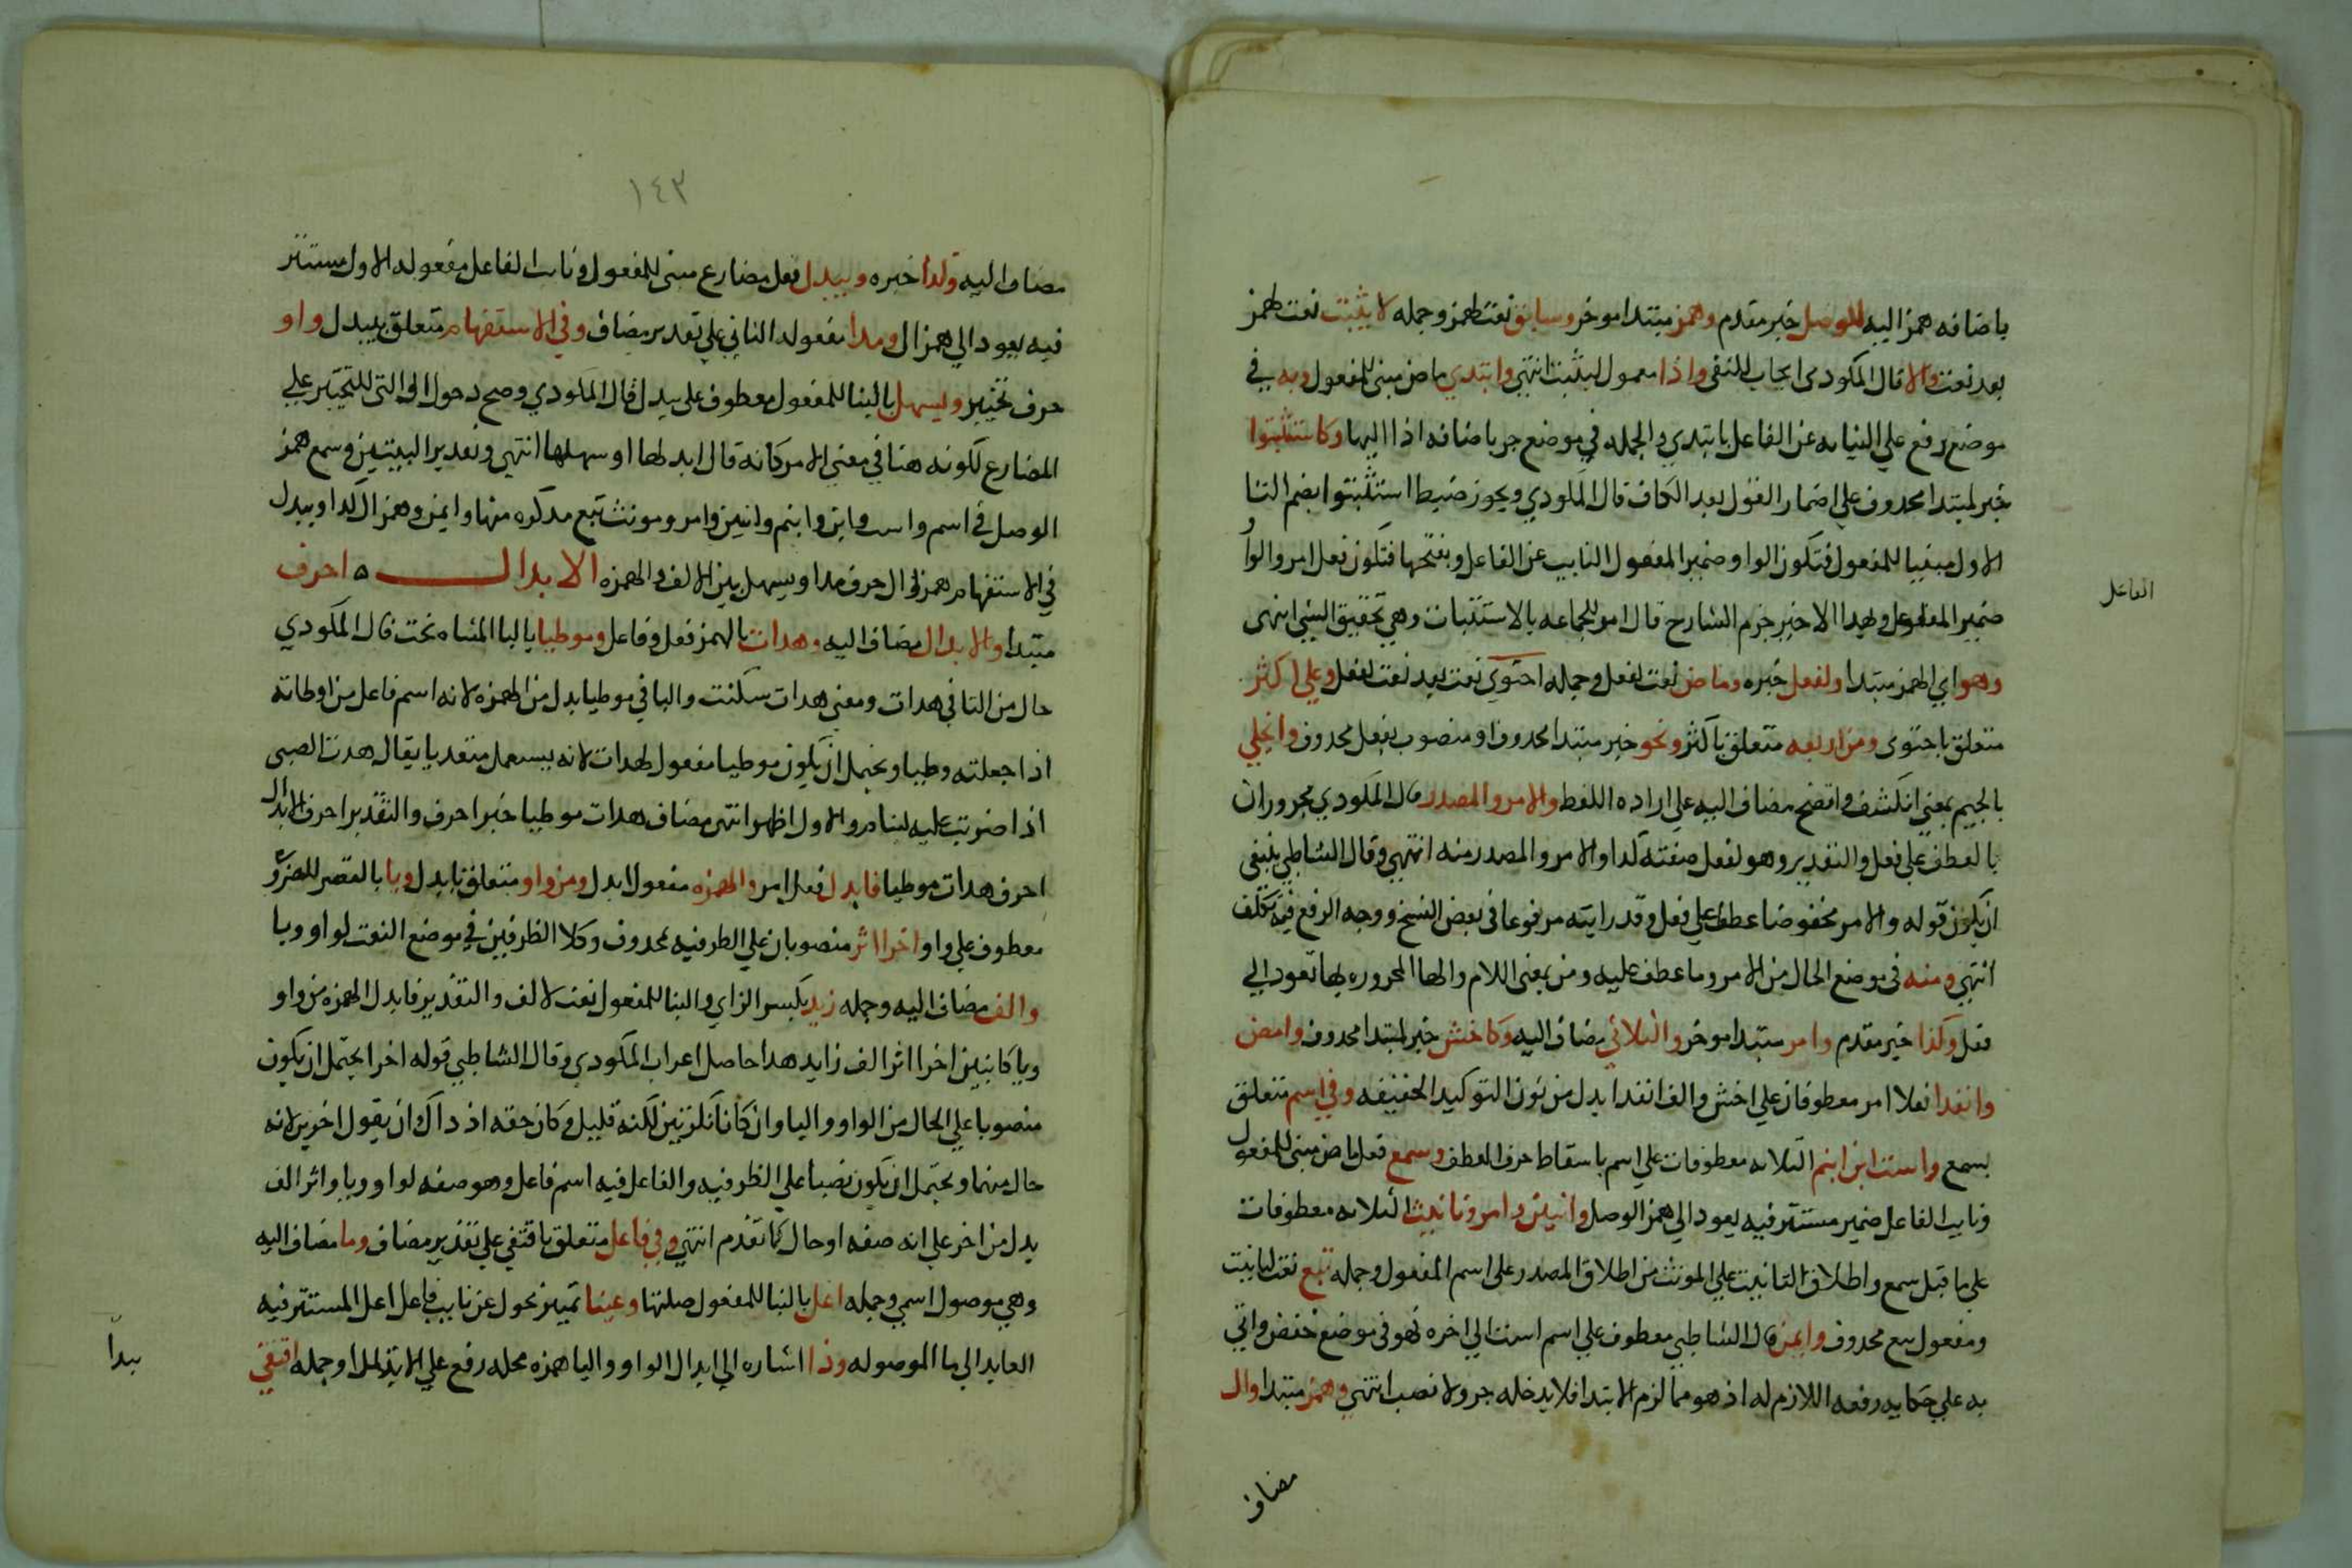 باضافه همز اليه للوصل خبر مقدم وهمز مبتدا موخر وسابق نعت لهمز وجمله لا يثبت نعت لهمز
بعد نعت والا قال المكودي ايجاب للنفي واذا معمول ليثبت انتهي وابتدي ماض مبني للمفعول وبه في
موضع رفع علي النيابه عن الفاعل بابتدي والجمله في موضع جر باضافه اذا اليها وكاستثبتوا
خبر لمبتدا محدوف علي اضمار القول بعد الكاف قال المكودي ويجوز ضبط استثبتوا بضم التا
الاول مبنيا للمفعول فتكون الواو ضمير المفعول النايب عن الفاعل وبفتحها فتكون فعل امر والواو
ضمير الفاعل وبهدا الاخير جزم الشارح قال امر للجماعه بالاستثبات وهي تحقيق الشي انتهى
الفاعل
وهو اي الهمز مبتدا ولفعل خبره وماض نعت لفعل وجمله احتوي نعت بعد نعت لفعل وعلي اكثر
متعلق باحتوى ومن اربعه متعلق باكثر ونحو خبر مبتدا محدوف او منصوب بفعل محدوف وانجلي
بالجيم بمعني انكشف واتضح مضاف اليه علي اراده اللفظ والامر والمصدر قال المكودي مجروران
بالعطف علي فعل والتقدير وهو لفعل صفته كدا والامر والمصدر منه انتهي وقال الشاطبي ينبغي
ان يكون قوله والامر مخفوضا عطفا علي فعل وقد رايته مرفوعا في بعض النسخ ووجه الرفع فيه تكلف
انتهي ومنه في موضع الحال من الامر وما عطف عليه ومن بمعنى اللام والها المجروره بها تعود الي
فعل وكذا خبر مقدم وامر مبتدا موخر والثلاثي مضاف اليه وكاخش خبر لمبتدا محدوف وامض
وانفدا فعلا امر معطوفان علي اخش والف انفدا بدل من نون التوكيد الخفيفه وفي اسم متعلق
بسمع واست ابن ابنم الثلاثه معطوفات علي اسم باسقاط حرف العطف وسمع فعل ماض مبني للمفعول
ونايب الفاعل ضمير مستتر فيه يعود الي همز الوصل واثنين وامر وتانيث الثلاثه معطوفات
علي ما قبل سمع واطلاق التانيث علي المونث من اطلاق المصدر على اسم المفعول وجمله تبع نعت لتانيث
ومفعول تبع محدوف وايمن قال الشاطبي معطوف علي اسم است الي اخره فهو في موضع خفض واتي
به علي حكايه رفعه اللازم له اذ هو مما لزم الابتدا فلا يدخله جر ولا نصب انتهي وهمز مبتدا وال
مضاف
١٤٣
مضاف اليه وكدا خبره ويبدل فعل مضارع مبني للمفعول ونايب الفاعل مفعوله الاول مستتر
فيه يعود الي همز ال ومدا مفعوله الثاني علي تقدير مضاف وفي الاستفهام متعلق بيبدل واو
حرف تخيير ويسهل بالبنا للمفعول معطوف على يبدل قال المكودي وصح دخول او التي للتخيير علي
المضارع لكونه هنا في معني الامر كانه قال ابدلها او سهلها انتهي وتقدير البيتين وسمع همز
الوصل في اسم واست وابن وابنم واثنين وامر ومونث تبع مدكره منها وايمن وهمز ال كدا ويبدل
في الاستفهام همز ال حرف مدا ويسهل بين الالف والهمزه الابدال ه احرف
مبتدا والابدال مضاف اليه وهدات بالهمز فعل وفاعل وموطيا باليا المثناه تحت قال المكودي
حال من التا في هدات ومعني هدات سكنت واليا في موطيا بدل من الهمزه لانه اسم فاعل من اوطاته
اذا جعلته وطيا ويحتمل ان يكون موطيا مفعول لهدات لانه يستعمل متعديا يقال هدت الصبي
اذا ضربت عليه لينام والاول اظهر انتهى مضاف هدات موطيا خبر احرف والتقدير احرف الابدال
احرف هدات موطيا فابدل فعل امر والهمزه مفعول ابدل ومن واو متعلق بابدل ويا بالقصر للضروره
معطوف علي واو اخرا اثر منصوبان علي الظرفيه بمحدوف وكلا الظرفين في موضع النعت لواو ويا
والف مضاف اليه وجمله زيد بكسر الزاي والبنا للمفعول نعت لالف والتقدير فابدل الهمزه من واو
ويا كاينين اخرا اثر الف زايد هدا حاصل اعراب المكودي وقال الشاطبي قوله اخرا يحتمل ان يكون
منصوبا علي الحال من الواو واليا وان كانا نكرتين لكنه قليل وكان حقه اذ داك ان يقول اخرين لانه
حال منهما ويحتمل ان يكون نصبا علي الظرفيه والفاعل فيه اسم فاعل وهو صفه لواو ويا واثر الف
بدل من اخر علي انه صفه او حال كما تقدم انتهي وفي فاعل متعلق باقتفي علي تقدير مضاف وما مضاف اليه
وهي موصول اسمي وجمله اعل بالبنا للمفعول صلتها وعينا تمييز محول عن نايب فاعل اعل المستتر فيه
العايد الي ما الموصوله وذا اشاره الي ابدال الواو واليا همزه محله رفع علي الابتدا وجمله اقتفي